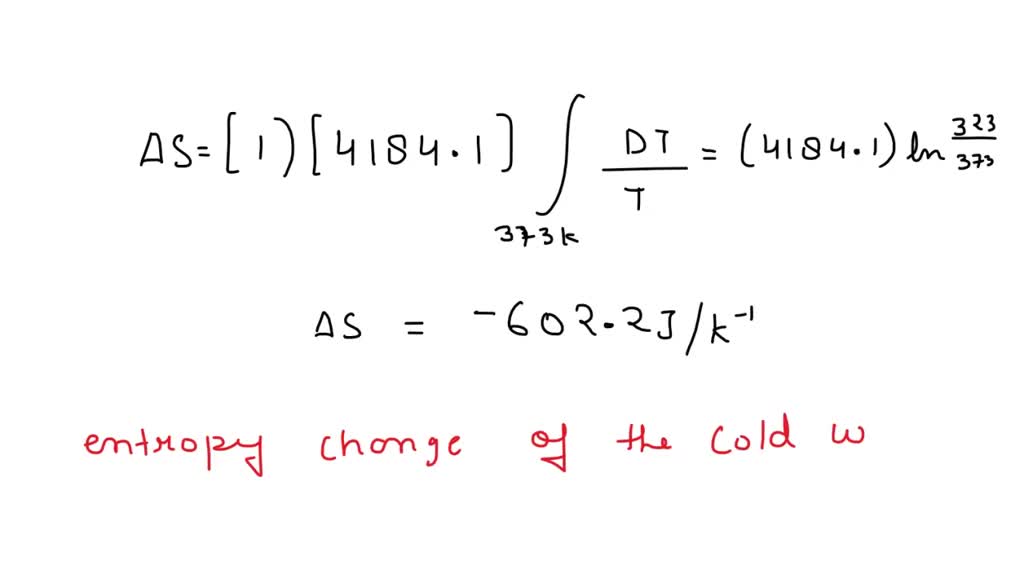 ΔS = [1)[4184.1] ∫ DT/T = (4184.1) ln 323/373
373k
ΔS = -602.2J/k⁻¹
entropy change of the cold w